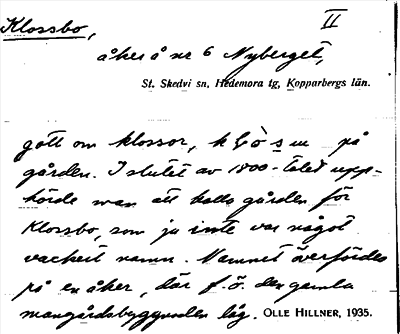 Klossbo,
II
åker å nr 6 Nyberget,
St. Skedvi sn, Hedemora tg, Kopparbergs län.
gott om klossor, på
gården. I slutet av 1800-talet upp-
hörde man att kalla gården för
Klossbo, som ju inte var något
vackert namn. Namnet överfördes
på en åker, där f.ö. den gamla
mangårdsbyggnaden låg. OLLE HILLNER, 1935.